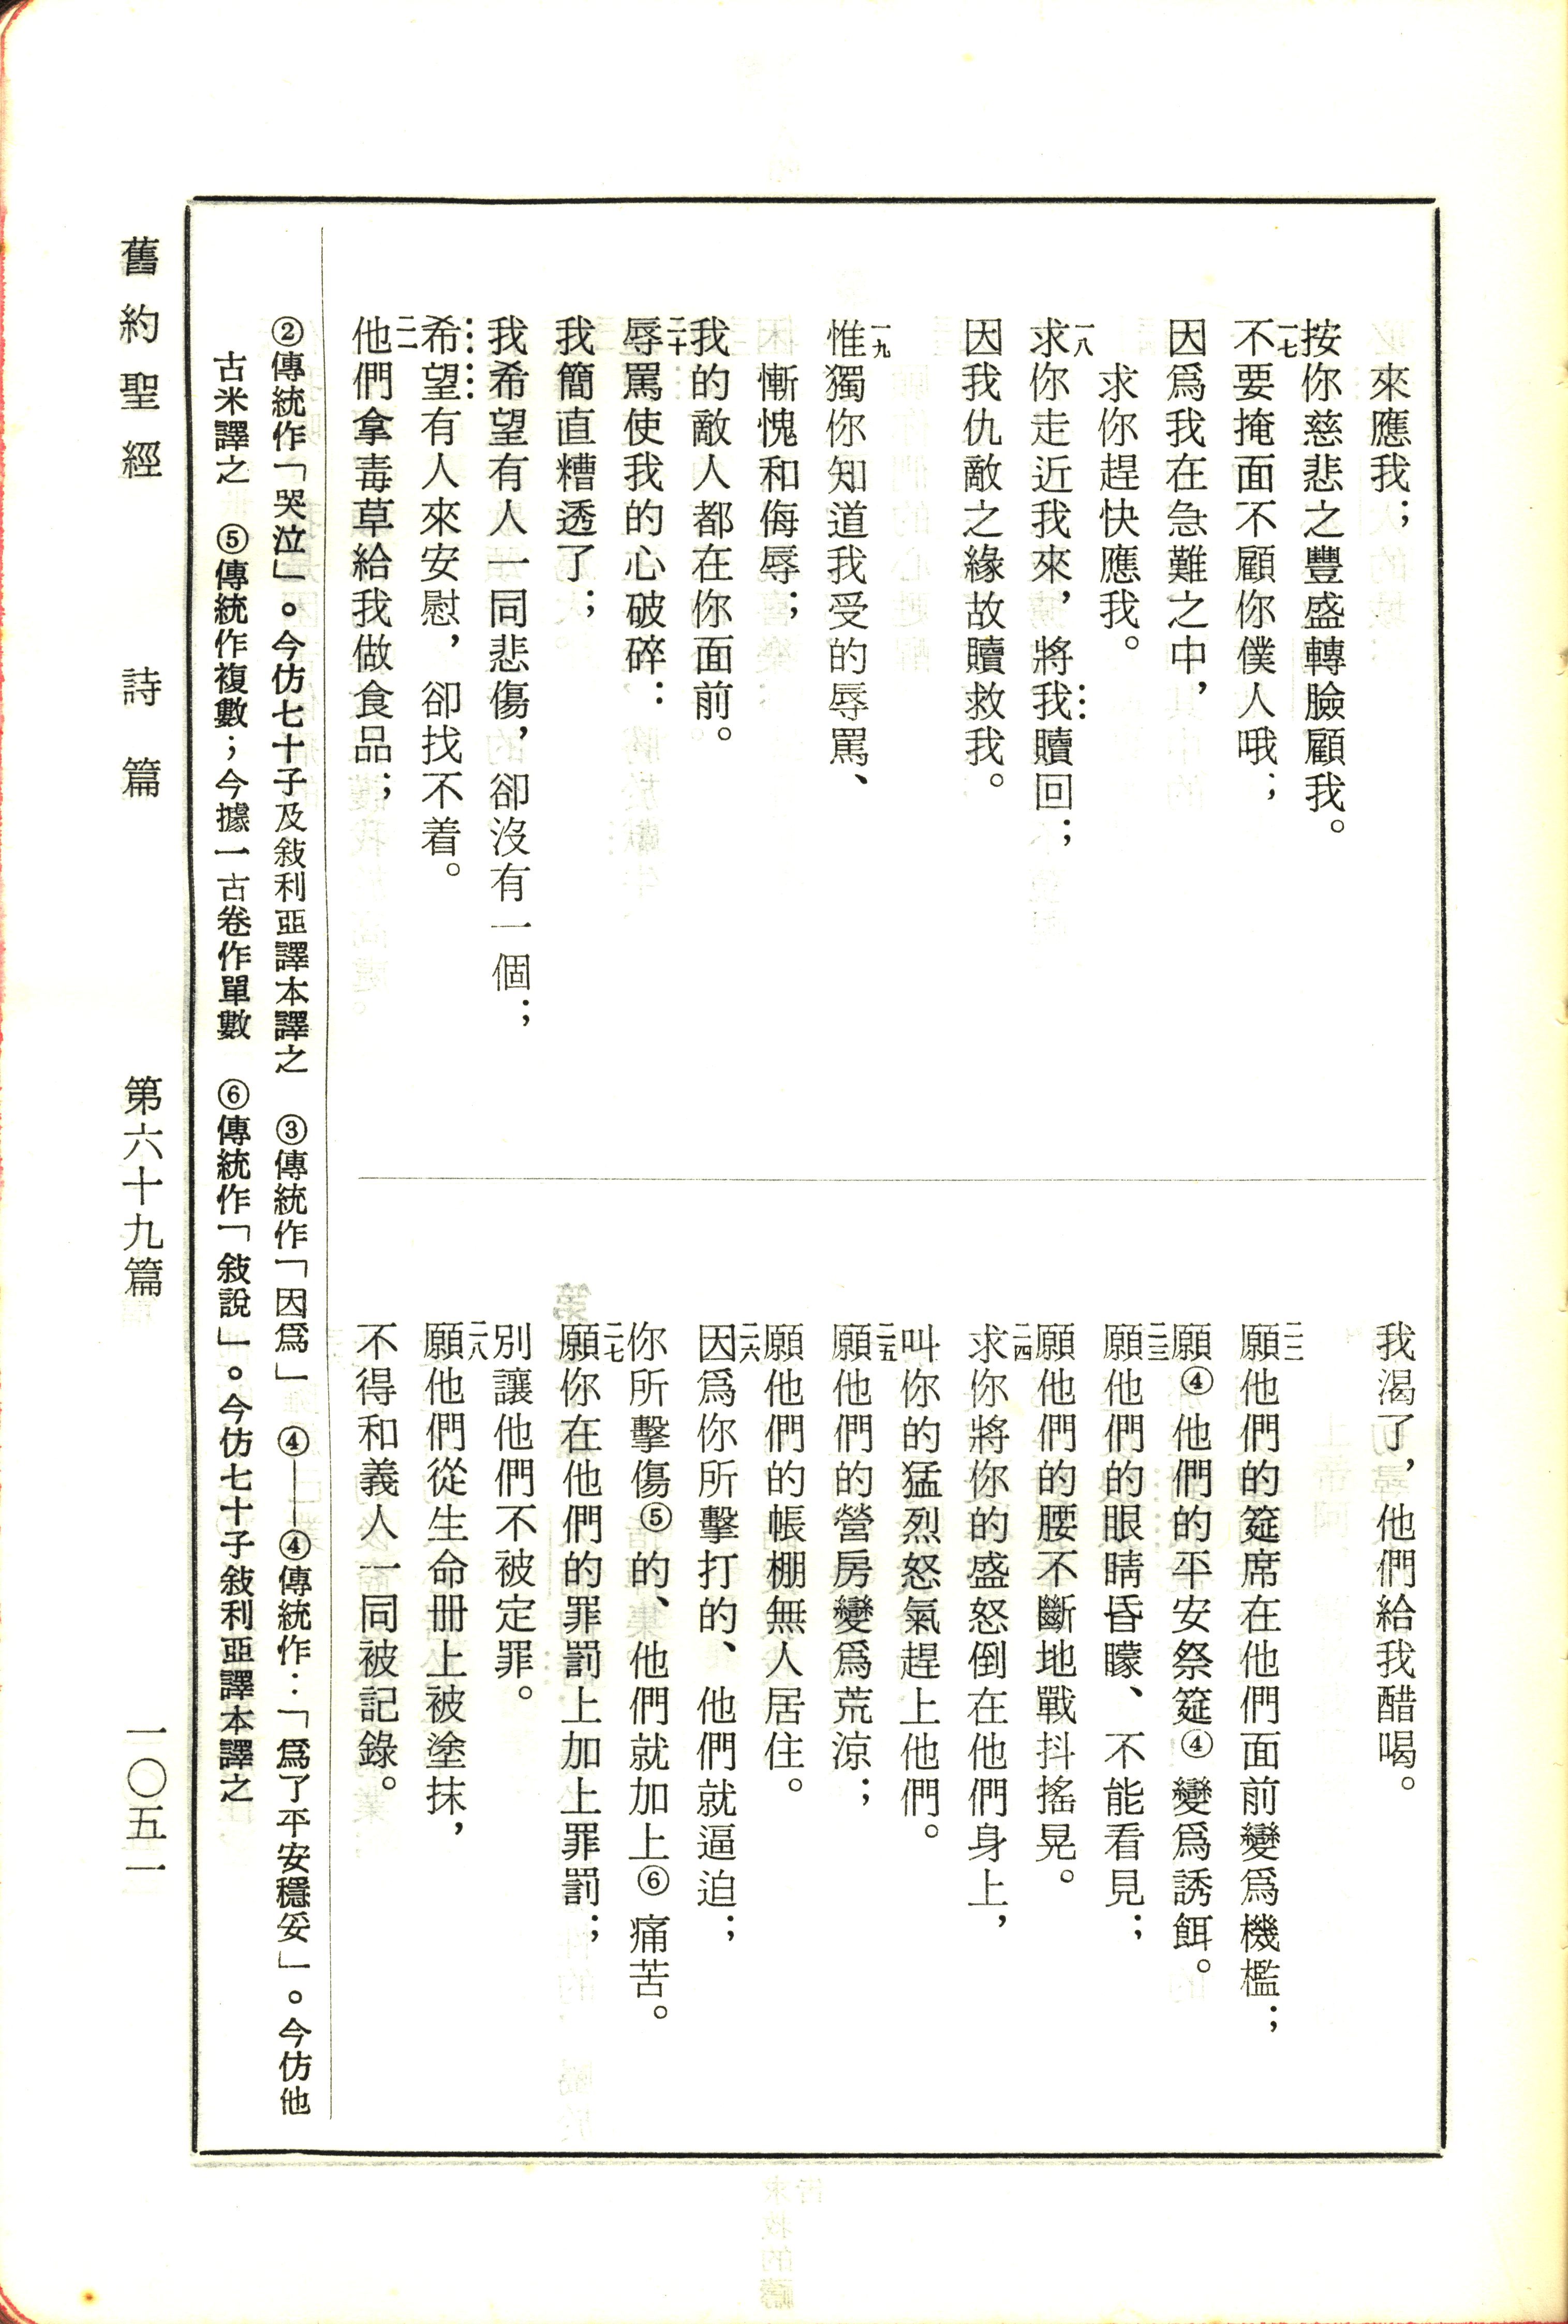 來應我；
按你慈悲之豐盛轉臉顧我。
一七不要掩面不顧你僕人哦；
因爲我在急難之中，
求你趕快應我。
一八求你走近我來，將我贖回；
因我仇敵之緣故贖救我。
一九惟獨你知道我受的辱罵、
慚愧和侮辱；
我的敵人都在你面前。
二十辱罵使我的心破碎：
我簡直糟透了；
我希望有人一同悲傷，卻沒有一個；
希望有人來安慰，卻找不着。
二一他們拿毒草給我做食品；
我渴了，他們給我醋喝。
二二願他們的筵席在他們面前變爲機檻；
願④他們的平安祭筵④變爲誘餌。
二三願他們的眼睛昏矇、不能看見；
願他們的腰不斷地戰抖搖晃。
二四求你將你的盛怒倒在他們身上，
叫你的猛烈怒氣趕上他們。
二五願他們的營房變爲荒涼；
願他們的帳棚無人居住。
二六因爲你所擊打的、他們就逼迫；
你所擊傷⑤的、他們就加上⑥痛苦。
二七願你在他們的罪罰上加上罪罰；
別讓他們不被定罪。
二八願他們從生命冊上被塗抹，
不得和義人一同被記錄。
②傳統作「哭泣」。今仿七十子及敍利亞譯本譯之　③傳統作「因爲」　④——④傳統作：「爲了平安穩妥」。今仿他
古米譯之　⑤傳統作複數；今據一古卷作單數　⑥傳統作「敍說」。今仿七十子敍利亞譯本譯之
舊約聖經　詩篇　第六十九篇　一〇五一